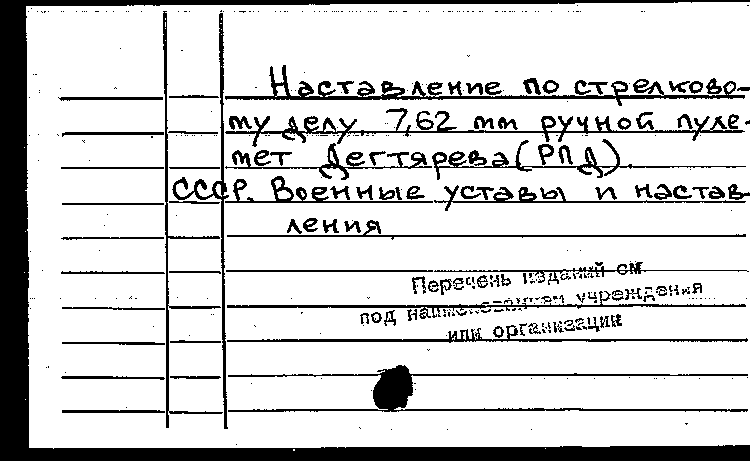 Наставление по стрелково-
му делу. 7,62 мм ручной пуле-
мет Дегтярева (РПД).
СССР. Военные уставы и настав-
ления.
Перечень изданий см.
под наименованием учреждения
или организации